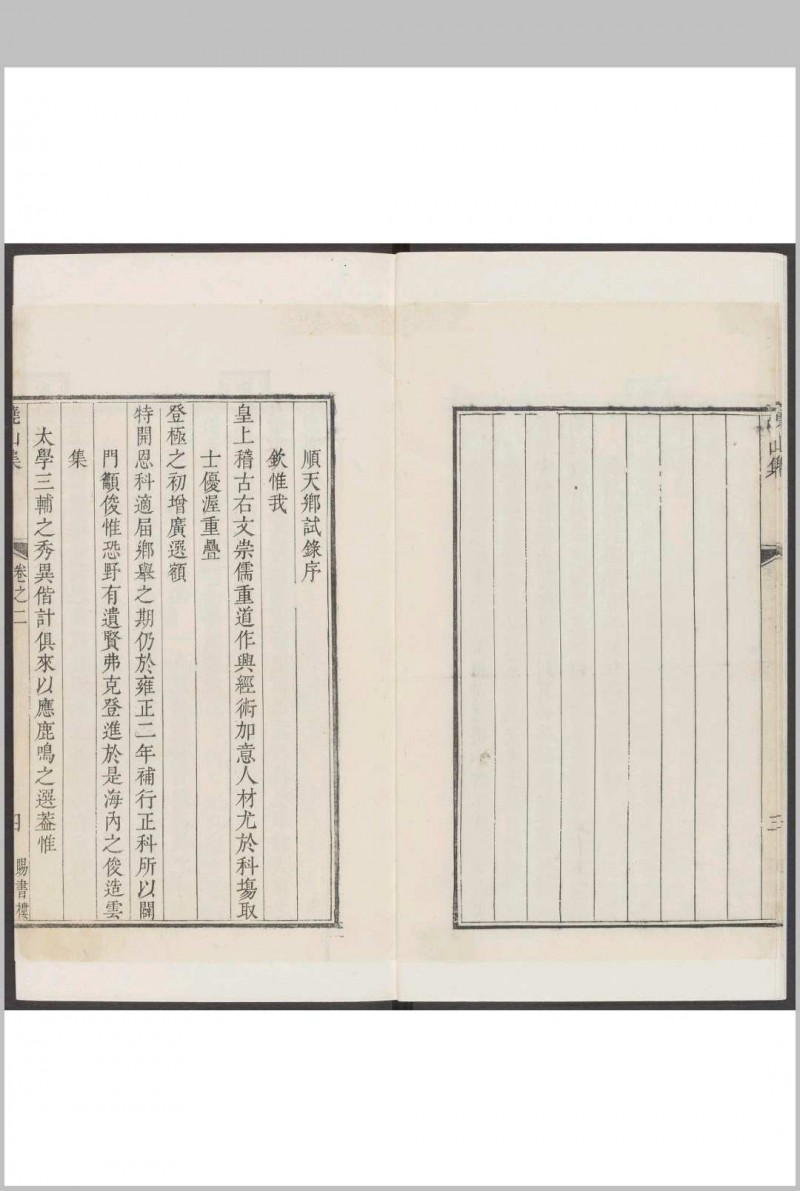 山集
三
順天鄉試錄序
欽惟我
皇上稽古右文崇儒重道作興經術加意人材尤於科塲取
士優渥重疊
登極之初增廣選額
特開恩科適届鄉舉之期仍於雍正二年補行正科所以闢
門籲俊惟恐野有遺賢弗克登進於是海內之俊造雲
集
太學三輔之秀異偕計俱來以應鹿鳴之選葢惟
山集
卷之二
賜書樓